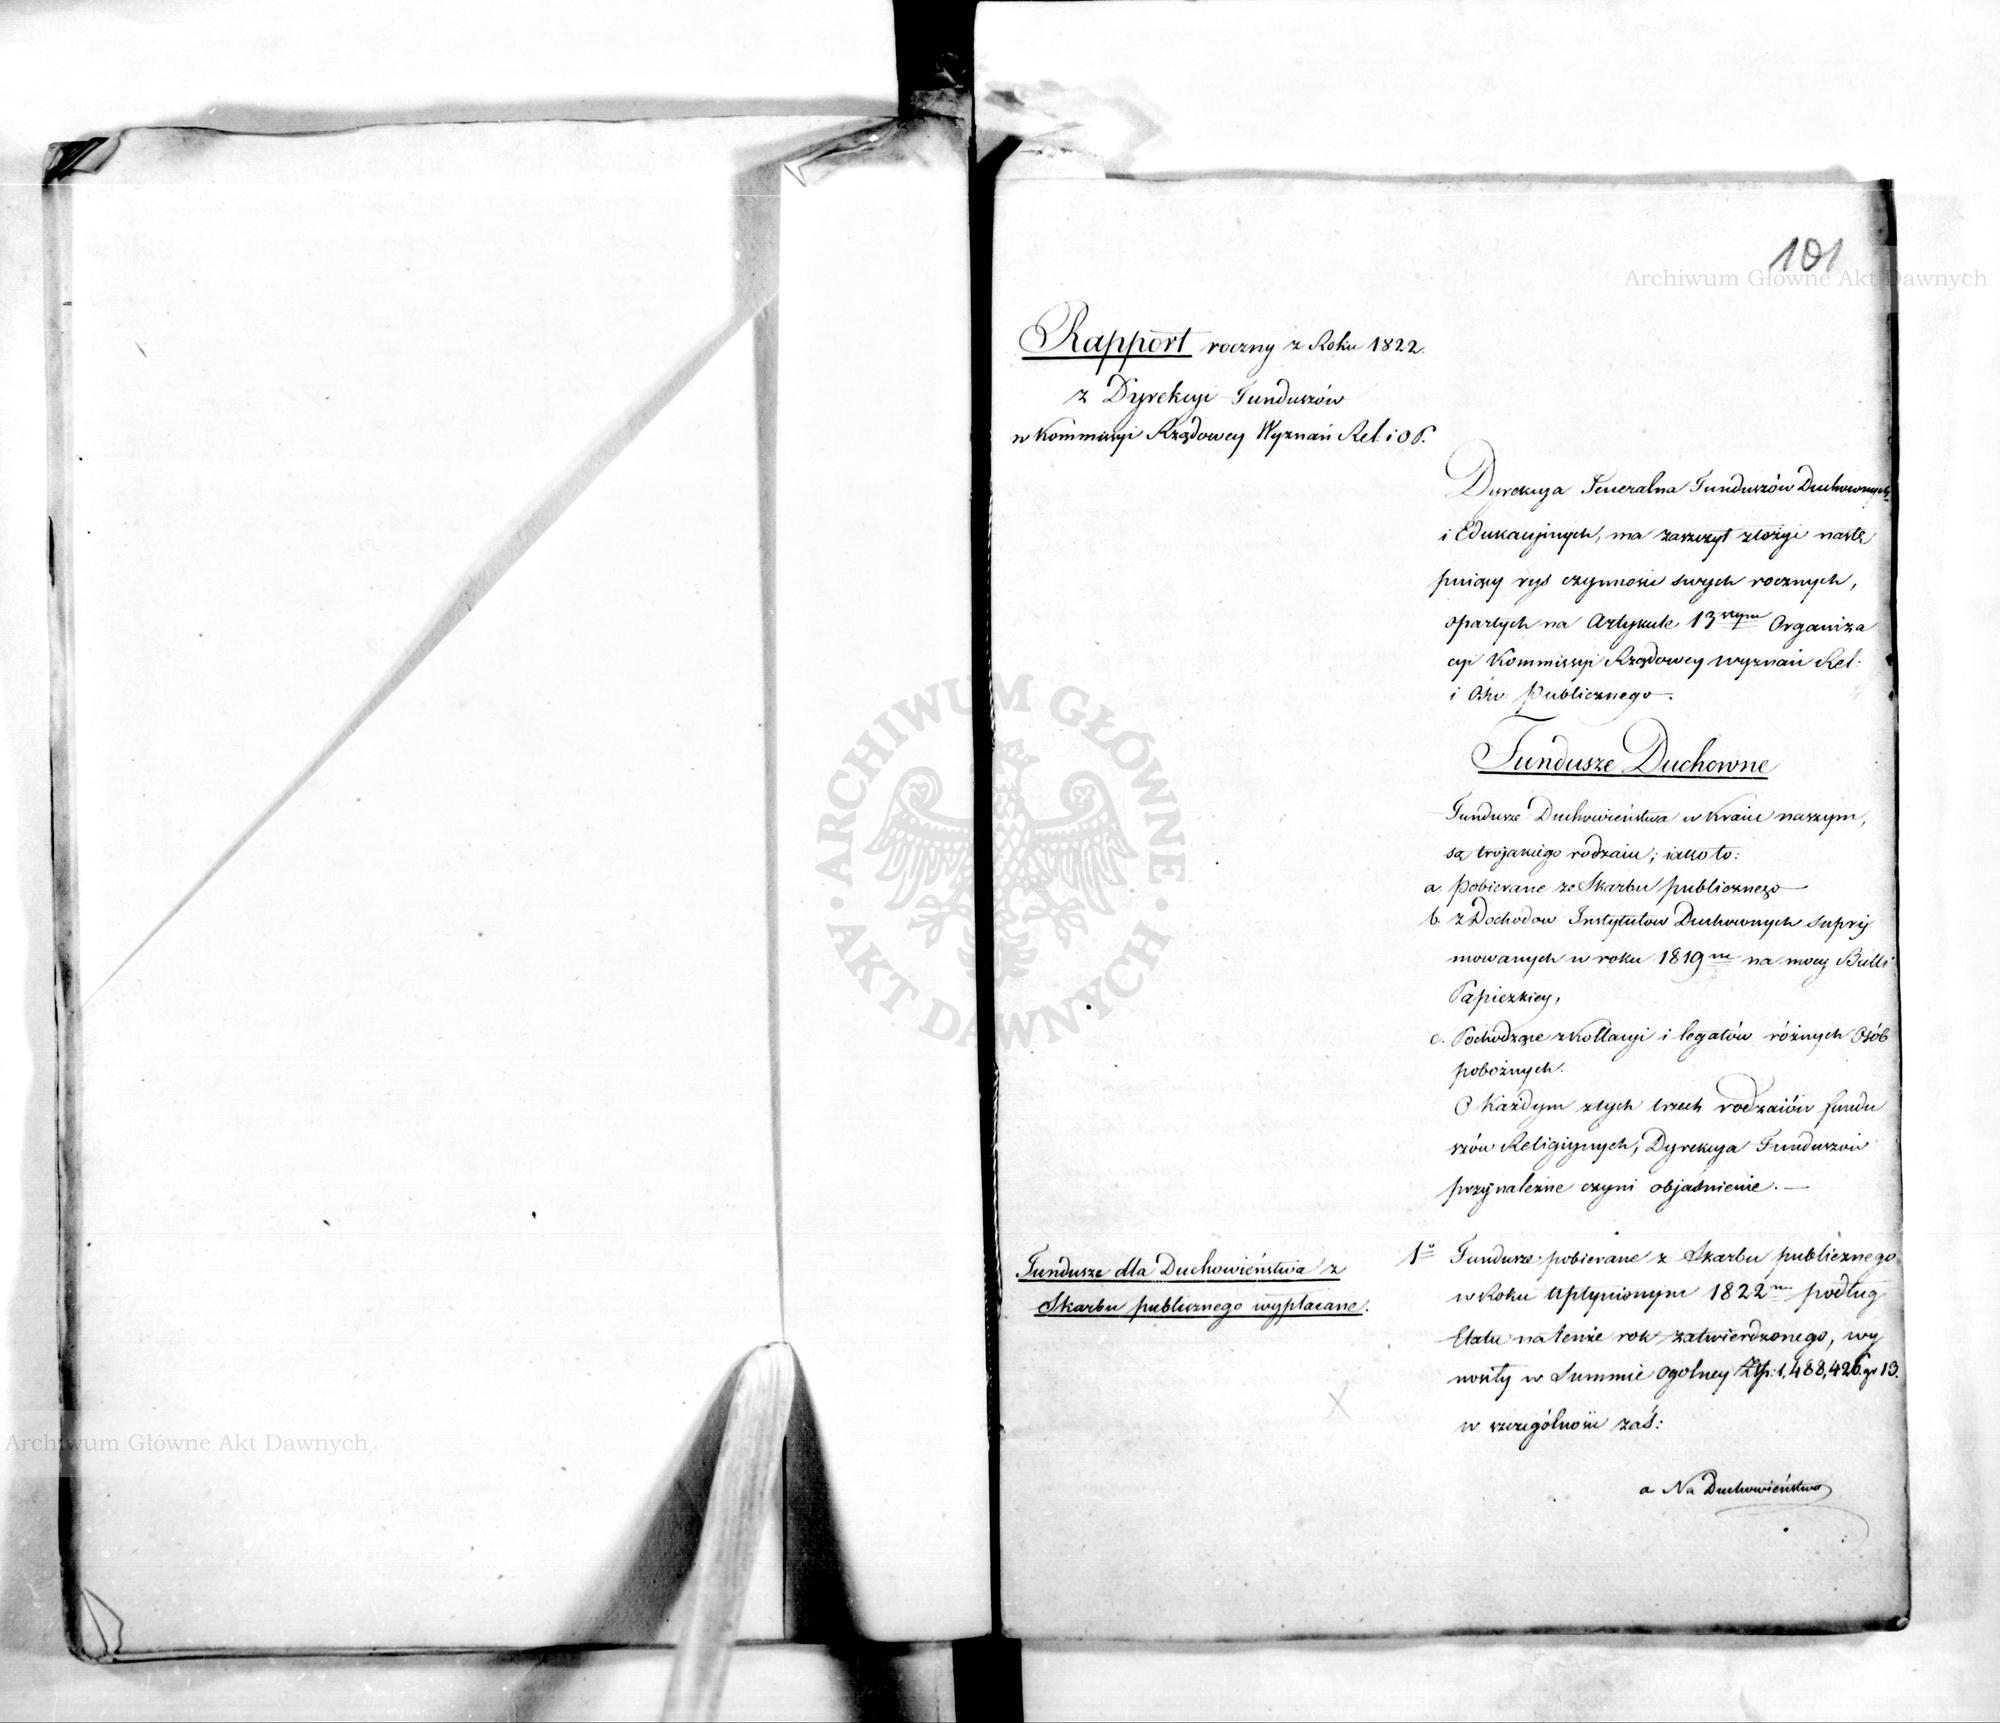 101
Archiwum Główne Akt Dawnych
Rapport roczny z Roku 1822.
z Dyrekcyi Funduszów
w Kommissyi Rządowey Wyznań Rel: i O P.
Dyrekcya Generalna Funduszów Duchownych
i Edukacyinych, ma zaszczyt złożyć nastę
puiący rys czynności swych rocznych,
opartych na Artykule 13stym Organiza
cyi Kommissyi Rządowey Wyznań Rel:
i Ośw: Publicznego.
Fundusze Duchowne
Fundusze Duchowieństwa w Kraiu naszym,
są troiakiego rodzaiu; iako to:
a. Pobierane ze Skarbu publicznego
b. z Dochodow Instytutow Duchownych supry
mowanych w roku 1819m na mocy Bulli
Papiezkiey,
c. Pochodzące z kollacyi i legatów różnych Osób
pobożnych.
O Każdym z tych trzech rodzaiów fundu
szów Religiynych, Dyrekcya Funduszów
przynależne czyni obiaśnienie.—
Fundusze dla Duchowieństwa z
Skarbu publicznego wypłacane.
1o Fundusze pobierane z Skarbu publicznego
w Roku upłynionym 1822m podług
Etatu na tenże rok zatwierdzonego, wy
nosiły w Summie ogolney Złp: 1,488,426 gr 13.
w szczególności zaś:
a Na Duchowieństwo
ARCHIWUM GŁÓWNE
AKT DAWNYCH
Archiwum Główne Akt Dawnych